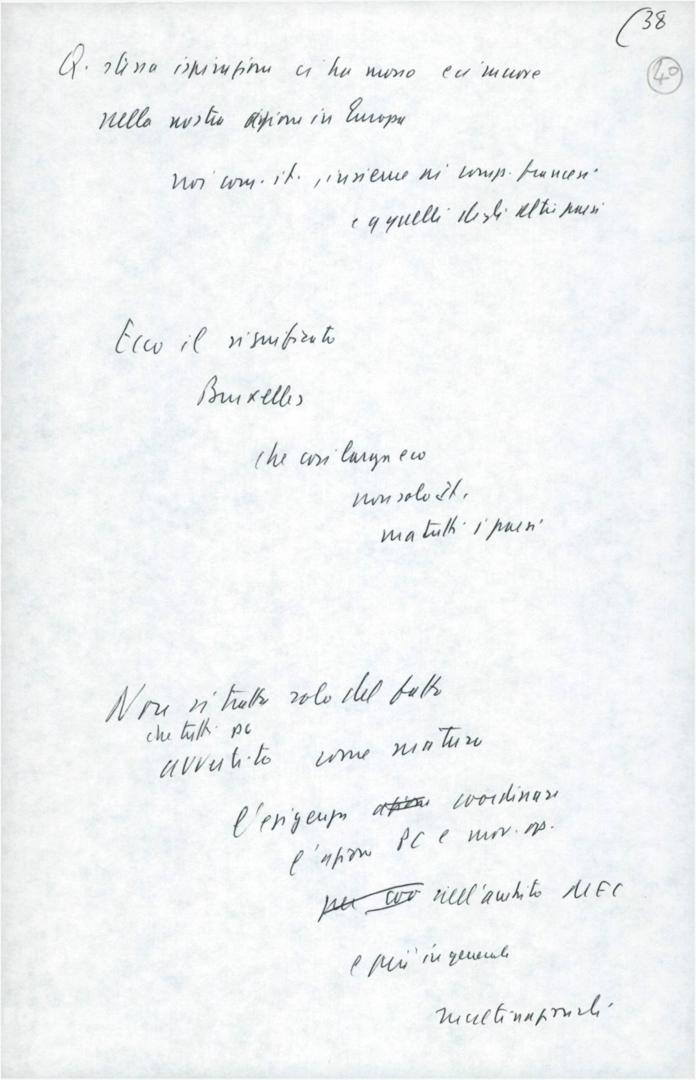 (38
40
Q. stessa ispirazione ci ha mosso e ci muove
nella nostra azione in Europa
noi com. it., insieme ai comp. francesi
e a quelli degli altri paesi
Ecco il significato
Bruxelles
che così larga eco
non solo It.
ma tutti i paesi
Non si tratta solo del fatto
che tutti PC
avvertito come matura
l'esigenza azione coordinare
l'azione PC e mov. op.
per coo nell'ambito MEC
e più in generale
multinazionali